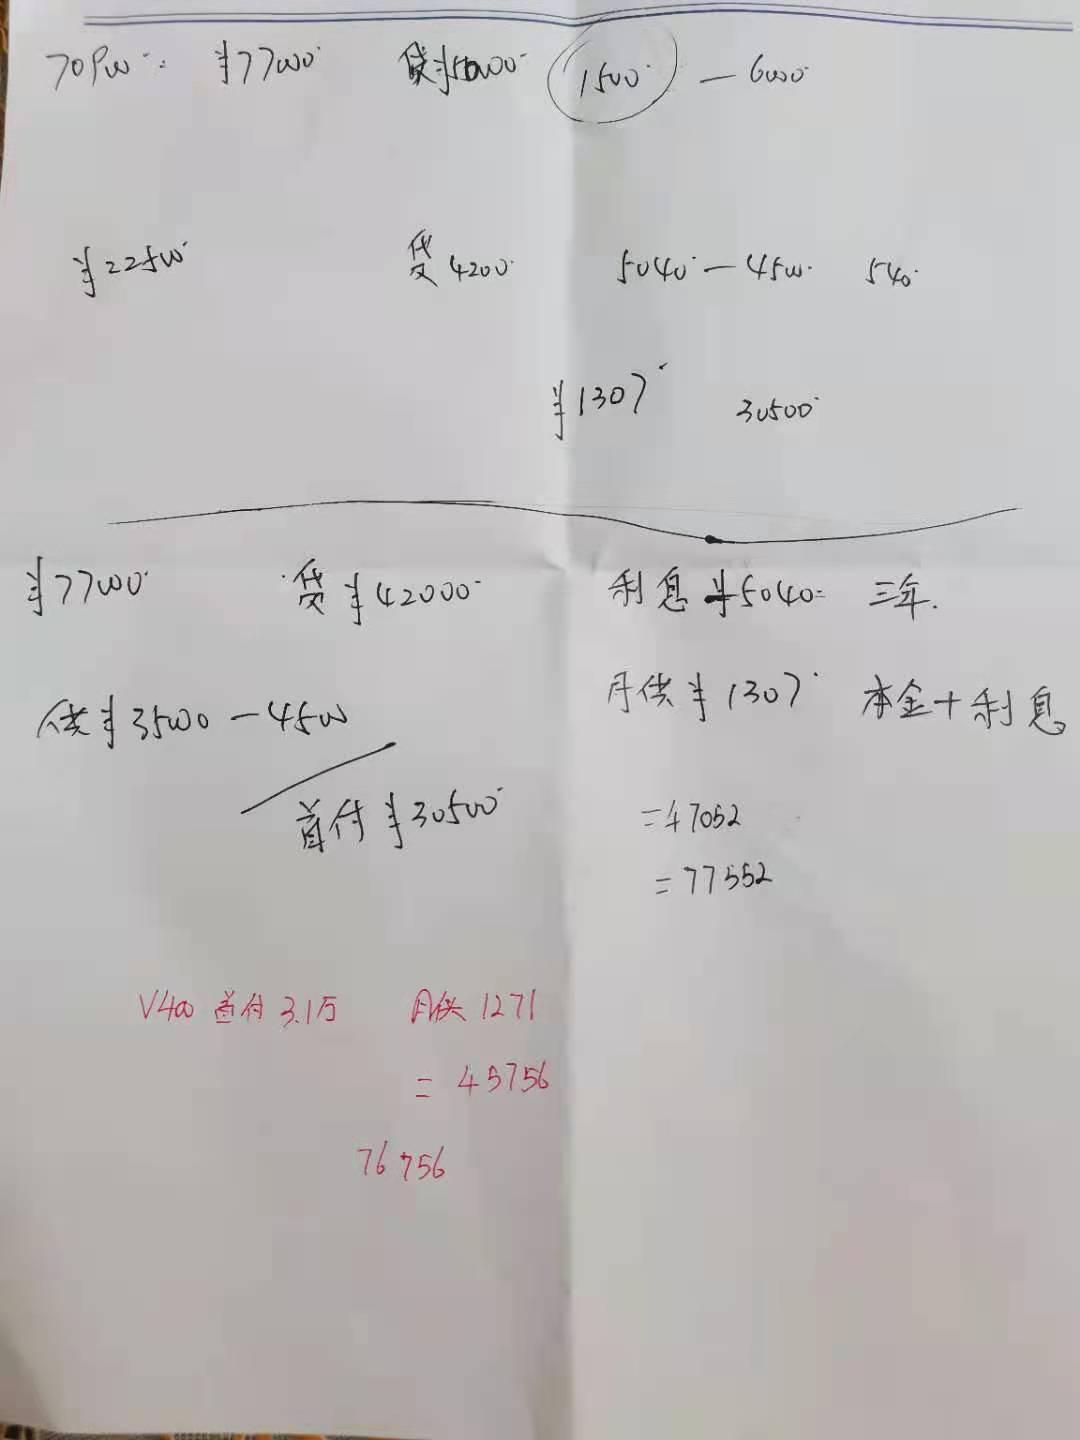 ¥77000 贷¥50000 1500 — 6000
¥22500 贷4200 5040 — 4500 540
¥1307 30500
¥77000 贷¥42000 利息¥5040= 三年.
供¥35000 - 4500 月供¥1307 本金+利息
首付¥30500 =47052
=77552
V400 首付3.1万 月供1271
= 45756
76756